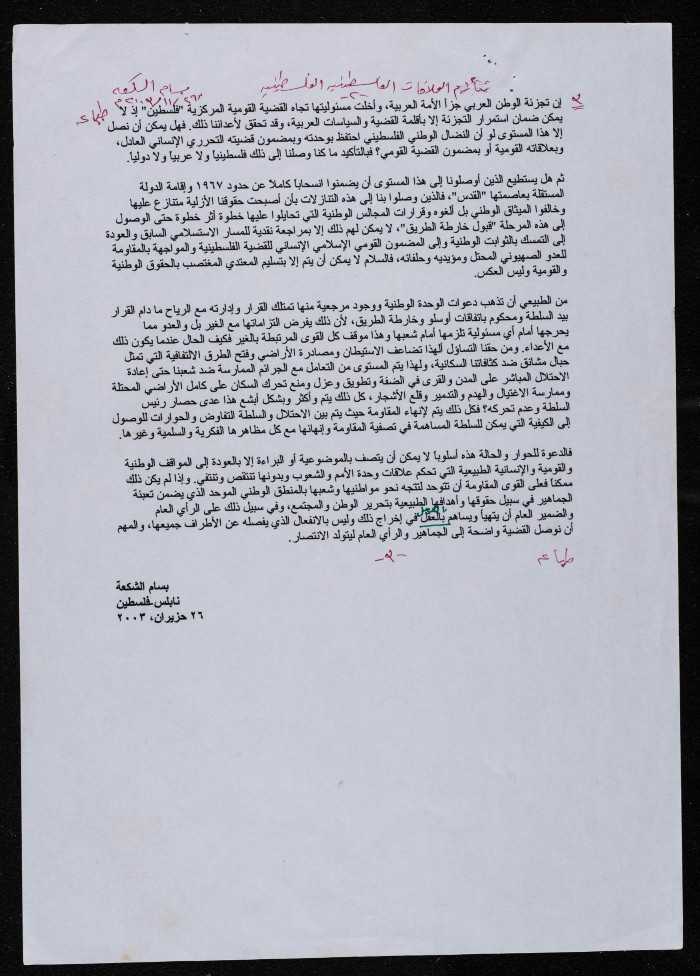 تأزم العلاقات الفلسطينية الفلسطينية
-٢-
بسام الشكعة
٣
طباعة
إن تجزئة الوطن العربي جزأ الأمة العربية، وأخلت مسئوليتها تجاه القضية القومية المركزية "فلسطين" إذ لا
يمكن ضمان استمرار التجزئة إلا بأقلمة القضية والسياسات العربية، وقد تحقق لأعدائنا ذلك. فهل يمكن أن نصل
إلا هذا المستوى لو أن النضال الوطني الفلسطيني احتفظ بوحدته وبمضمون قضيته التحرري الإنساني العادل،
وبعلاقاته القومية أو بمضمون القضية القومي؟ فبالتأكيد ما كنا وصلنا إلى ذلك فلسطينياً ولا عربياً ولا دولياً.
ثم هل يستطيع الذين أوصلونا إلى هذا المستوى أن يضمنوا انسحاباً كاملاً عن حدود ١٩٦٧ وإقامة الدولة
المستقلة بعاصمتها "القدس"، فالذين وصلوا بنا إلى هذه التنازلات بأن أصبحت حقوقنا الأزلية متنازع عليها
وخالفوا الميثاق الوطني بل ألغوه وقرارات المجالس الوطنية التي تحايلوا عليها خطوة أثر خطوة حتى الوصول
إلى هذه المرحلة "قبول خارطة الطريق"، لا يمكن لهم ذلك إلا بمراجعة نقدية للمسار الاستسلامي السابق والعودة
إلى التمسك بالثوابت الوطنية وإلى المضمون القومي الإسلامي الإنساني للقضية الفلسطينية والمواجهة بالمقاومة
للعدو الصهيوني المحتل ومؤيديه وحلفائه، فالسلام لا يمكن أن يتم إلا بتسليم المعتدي المغتصب بالحقوق الوطنية
والقومية وليس العكس.
من الطبيعي أن تذهب دعوات الوحدة الوطنية ووجود مرجعية منها تمتلك القرار وإدارته مع الرياح ما دام القرار
بيد السلطة ومحكوم باتفاقات أوسلو وخارطة الطريق، لأن ذلك يفرض التزاماتها مع الغير بل والعدو مما
يحرجها أمام أي مسئولية تلزمها أمام شعبها وهذا موقف كل القوى المرتبطة بالغير فكيف الحال عندما يكون ذلك
مع الأعداء. ومن حقنا التساؤل ألهذا تضاعف الاستيطان ومصادرة الأراضي وفتح الطرق الالتفافية التي تمثل
حبال مشانق ضد كثافاتنا السكانية، ولهذا يتم المستوى من التعامل مع الجرائم الممارسة ضد شعبنا حتى إعادة
الاحتلال المباشر على المدن والقرى في الضفة وتطويق وعزل ومنع تحرك السكان على كامل الأراضي المحتلة
وممارسة الاغتيال والهدم والتدمير وقلع الأشجار، كل ذلك يتم وأكثر وبشكل أبشع هذا عدى حصار رئيس
السلطة وعدم تحركه؟ فكل ذلك يتم لإنهاء المقاومة حيث يتم بين الاحتلال والسلطة التفاوض والحوارات للوصول
إلى الكيفية التي يمكن للسلطة المساهمة في تصفية المقاومة وإنهائها مع كل مظاهرها الفكرية والسلمية وغيرها.
فالدعوة للحوار والحالة هذه أسلوباً لا يمكن أن يتصف بالموضوعية أو البراءة إلا بالعودة إلى المواقف الوطنية
والقومية والإنسانية الطبيعية التي تحكم علاقات وحدة الأمم والشعوب وبدونها تنتقص وتنتفي. وإذا لم يكن ذلك
ممكناً فعلى القوى المقاومة أن تتوحد لتتجه نحو مواطنيها وشعبها بالمنطق الوطني الموحد الذي يضمن تعبئة
الجماهير في سبيل حقوقها وأهدافها الطبيعية بتحرير الوطن والمجتمع، وفي سبيل ذلك على الرأي العام
والضمير العام أن يتهيأ ويساهم بالعقل في إخراج ذلك وليس بالانفعال الذي يفصله عن الأطراف جميعها، والمهم
أن نوصل القضية واضحة إلى الجماهير والرأي العام ليتولد الانتصار.
طباعة
-٣-
بسام الشكعة
نابلس-فلسطين
٢٦ حزيران، ٢٠٠٣